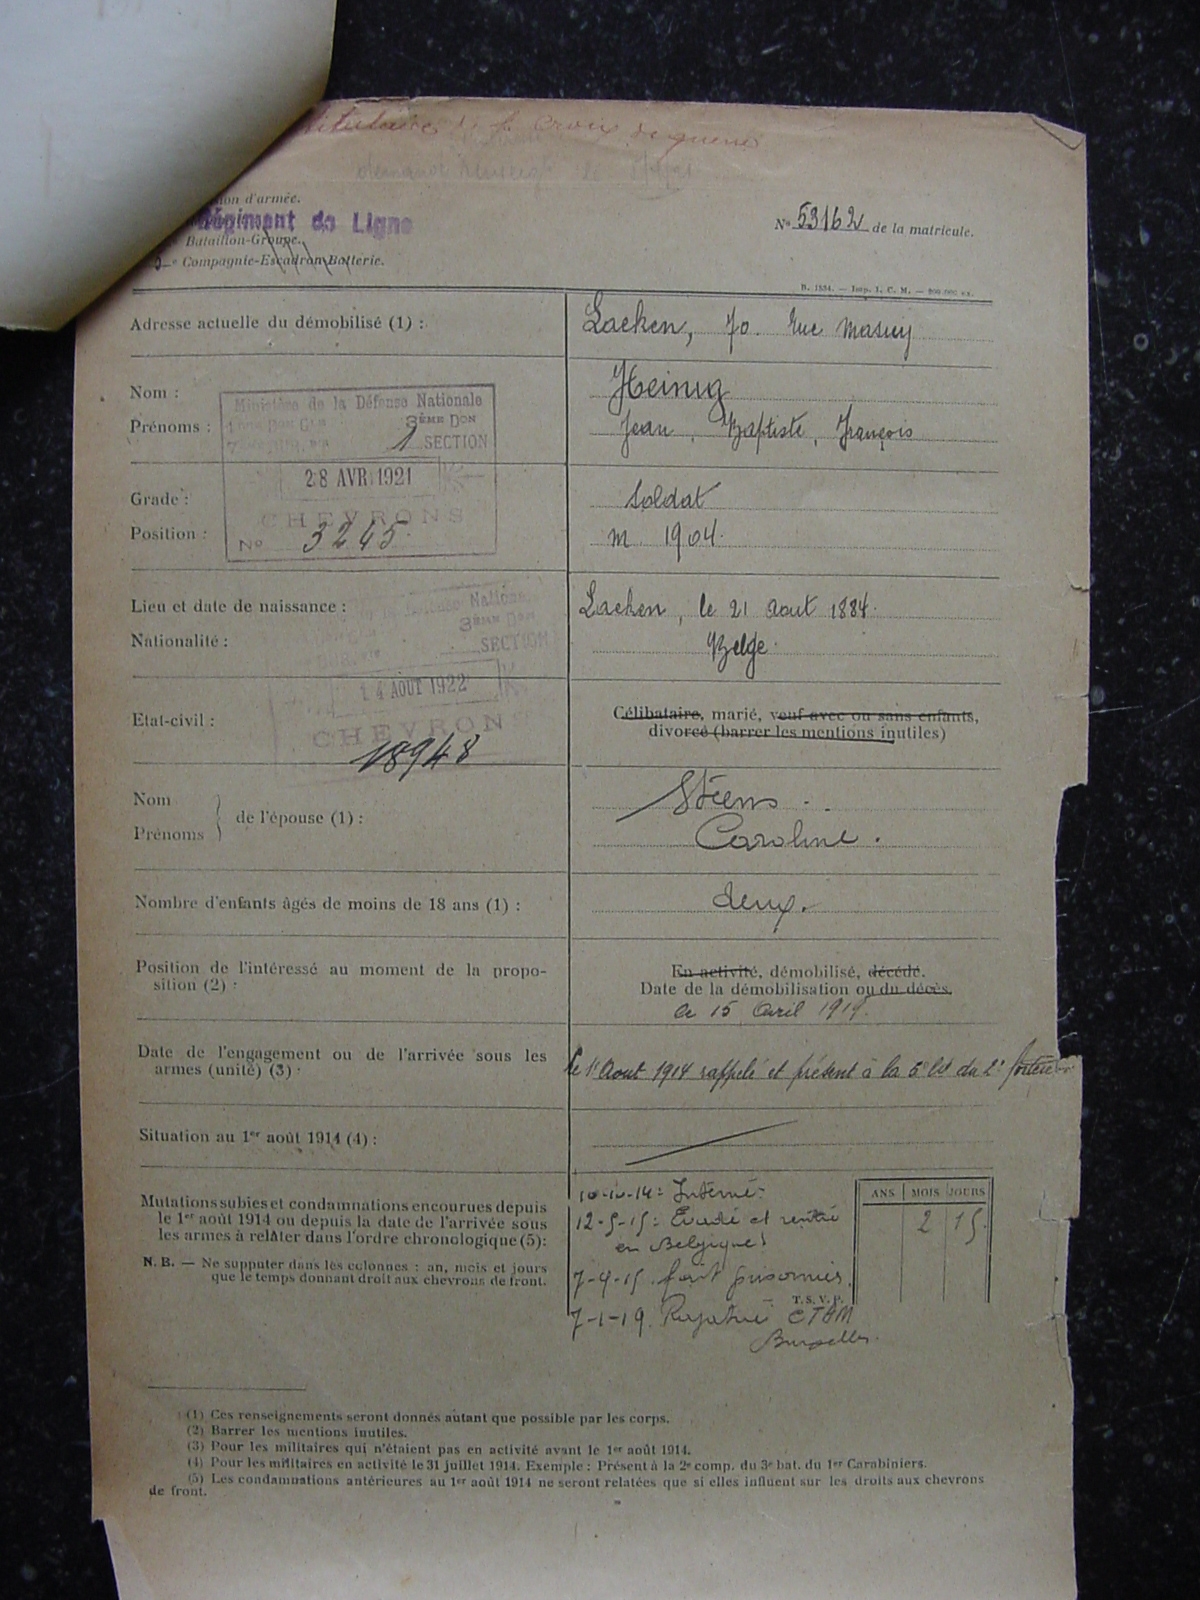 de la Croix de guerre
ion d'armée.
Régiment de Ligne
Bataillon-Groupe.
Compagnie-Escadron-Batterie.
N° 53162 de la matricule.
B. 1534. — Imp. I. C. M. —
Adresse actuelle du démobilisé (1) :
Laeken, 70. Rue Masuy
Nom :
Heinig
Prénoms :
Jean, Baptiste, François
Ministère de la Défense Nationale
3ÈME DON
1 SECTION
28 AVR 1921
CHEVRONS
No 3245
Grade :
Soldat
Position :
m. 1904.
Lieu et date de naissance :
Laeken, le 21 Aout 1884.
Nationalité :
Belge.
Nationale
3ÈME DON
SECTION
14 AOUT 1922
CHEVRONS
18948
Etat-civil :
Célibataire, marié, veuf avec ou sans enfants,
divorcé (barrer les mentions inutiles)
Nom
Prénoms
de l'épouse (1) :
Stéens
Caroline.
Nombre d'enfants âgés de moins de 18 ans (1) :
deux.
Position de l'intéressé au moment de la propo-
sition (2) :
En activité, démobilisé, décédé.
Date de la démobilisation ou du décès.
le 15 Avril 1919.
Date de l'engagement ou de l'arrivée sous les
armes (unité) (3) :
le 1 Aout 1914 rappelé et présent à la 5e du 2e
Situation au 1er août 1914 (4) :
Mutations subies et condamnations encourues depuis
le 1er août 1914 ou depuis la date de l'arrivée sous
les armes à relater dans l'ordre chronologique (5) :
N. B. — Ne supputer dans les colonnes : an, mois et jours
que le temps donnant droit aux chevrons de front.
10-10-14 : Interné.
12-5-15 : Evadé et rentré
en Belgique
7-9-15. fait prisonnier.
T. S. V. P.
7-1-19. Rapatrié CTAM
Bruxelles.
ANS MOIS JOURS
2 15.
(1) Ces renseignements seront donnés autant que possible par les corps.
(2) Barrer les mentions inutiles.
(3) Pour les militaires qui n'étaient pas en activité avant le 1er août 1914.
(4) Pour les militaires en activité le 31 juillet 1914. Exemple : Présent à la 2e comp. du 3e bat. du 1er Carabiniers.
(5) Les condamnations antérieures au 1er août 1914 ne seront relatées que si elles influent sur les droits aux chevrons
de front.